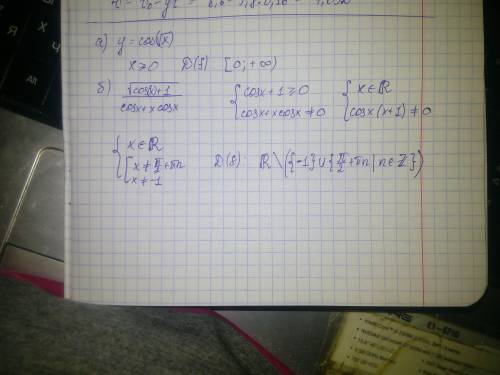 а) y = cos(√x)
x ≥ 0 D(f) [0; +∞)
б) √(cos(x)+1) / (cosx + x cosx) { cosx + 1 ≥ 0 ; cosx + x cosx ≠ 0 { x ∈ ℝ ; cosx (x+1) ≠ 0
{ x ∈ ℝ ; [ x ≠ π/2 + πn ; x ≠ -1 D(f): ℝ \ ({-1} ∪ {π/2 + πn | n ∈ ℤ})